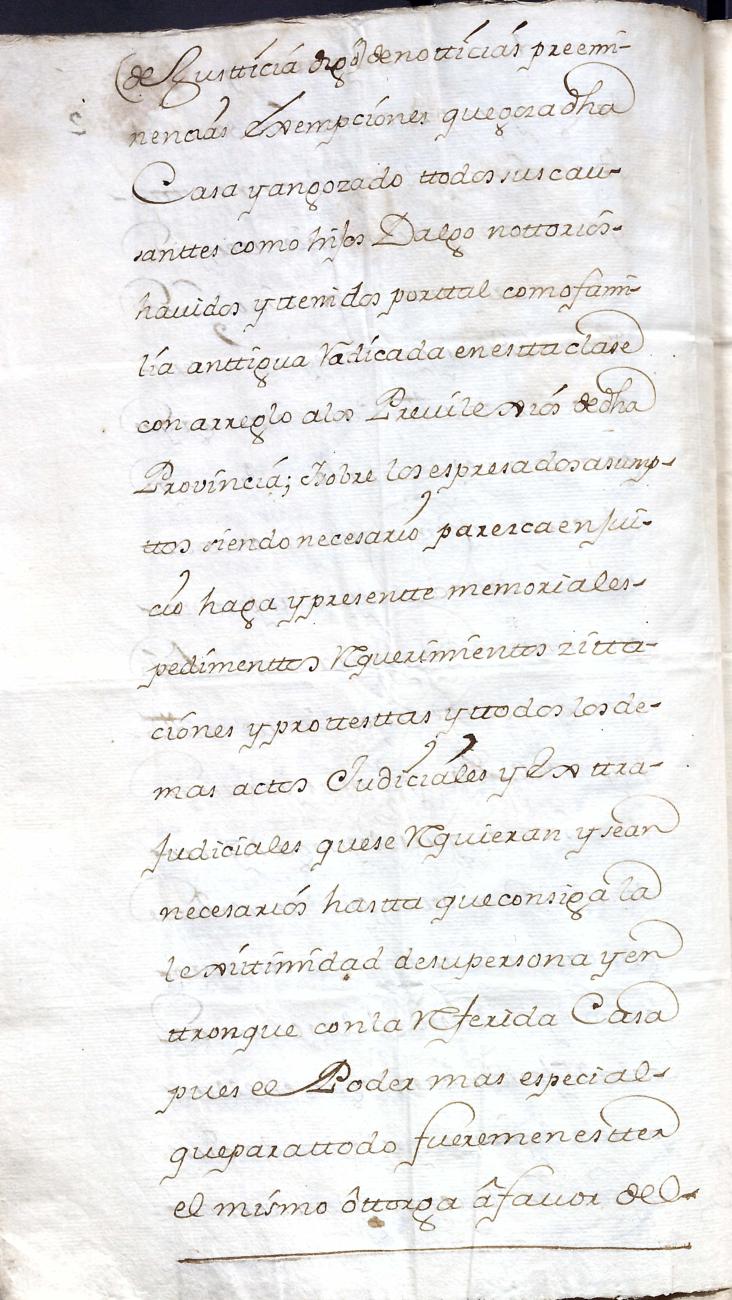 (de Justticia digo) de notticias preemi-
nencias Exempciones que goza dha
Casa y an gozado ttodos sus cau-
santtes como hijos Dalgo nottorios-
havidos y ttenidos por ttal como fami-
lia anttigua Radicada en estta clase
con arreglo a los Previlexios de dha
Provincia; Sobre los espresados asump-
ttos siendo necesario parezca en Jui-
cio haga y presentte memoriales-
pedimenttos Requerimientos zitta-
ciones y prottesttas y ttodos los de-
mas actos Judiciales y Exttra-
Judiciales que se Requieran y sean
necesarios hastta que consiga la
lexitimidad de su persona y en
ttronque con la Referida Casa
pues el Poder mas especial-
que para ttodo fuere menestter
el mismo ôttorga â favor del-